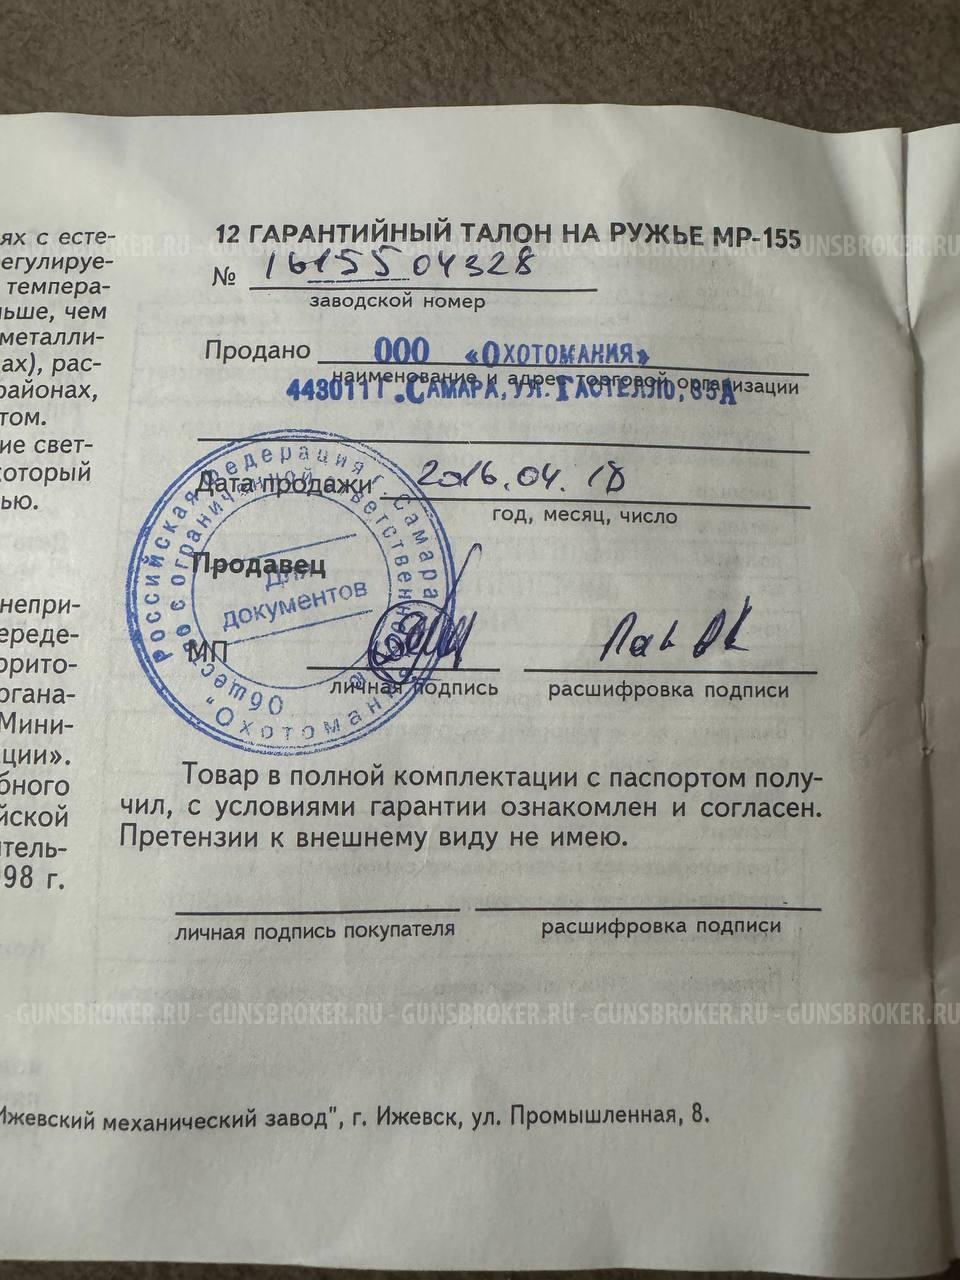 ях с есте-
егулируе-
темпера-
ньше, чем
металли-
ах), рас-
районах,
том.
ие свет-
который
ью.
непри-
ереде-
ррито-
ргана-
Мини-
ции».
бного
йской
тель-
98 г.
12 ГАРАНТИЙНЫЙ ТАЛОН НА РУЖЬЕ МР-155
№ 1615504328
заводской номер
Продано ООО «ОХОТОМАНИЯ»
наименование и адрес торговой организации
443011 Г. САМАРА, УЛ. ГАСТЕЛЛО, 35А
Дата продажи 2016.04.18
год, месяц, число
Продавец
МП
личная подпись расшифровка подписи
Российская Федерация г. Самара
Общество с ограниченной ответственностью
"Охотомания"
Для
документов
Товар в полной комплектации с паспортом полу-
чил, с условиями гарантии ознакомлен и согласен.
Претензии к внешнему виду не имею.
личная подпись покупателя расшифровка подписи
Ижевский механический завод", г. Ижевск, ул. Промышленная, 8.
GUNSBROKER.RU - GUNSBROKER.RU - GUNSBROKER.RU - GUNSBROKER.RU - GUNSBROKER.RU
- GUNSBROKER.RU - GUNSBROKER.RU - GUNSBROKER.RU - GUNSBROKER.RU - GUNSBROKER.RU